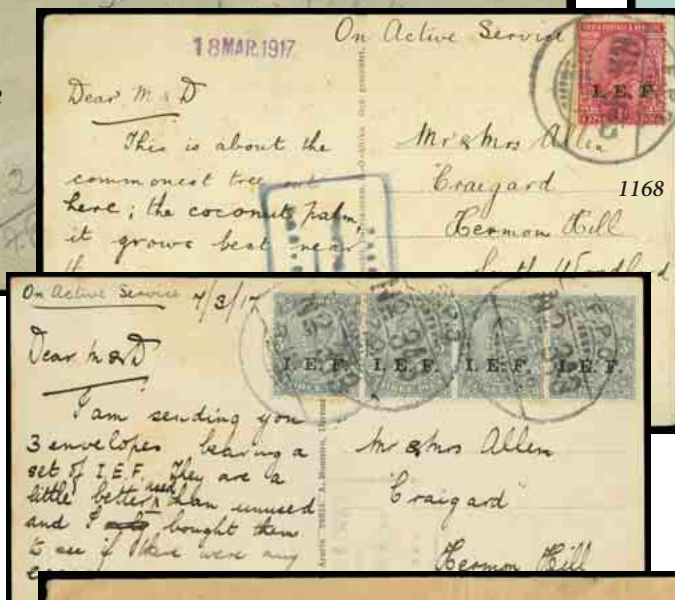 18 MAR. 1917
On Active Service
Dear M & D
This is about the
commonest tree out
here; the coconut palm,
it grows best near
Mr & Mrs Allen
Craigard
Hermon Hill
South Woodford
I. E. F.
1168
On Active Service 7/3/17
Dear M & D
I am sending you
3 envelopes bearing a
set of I.E.F. They are a
little better used than unused
and I bought them
to see if there were any
I. E. F. I. E. F. I. E. F. I. E. F.
Mr & Mrs Allen
"Craigard"
Hermon Hill